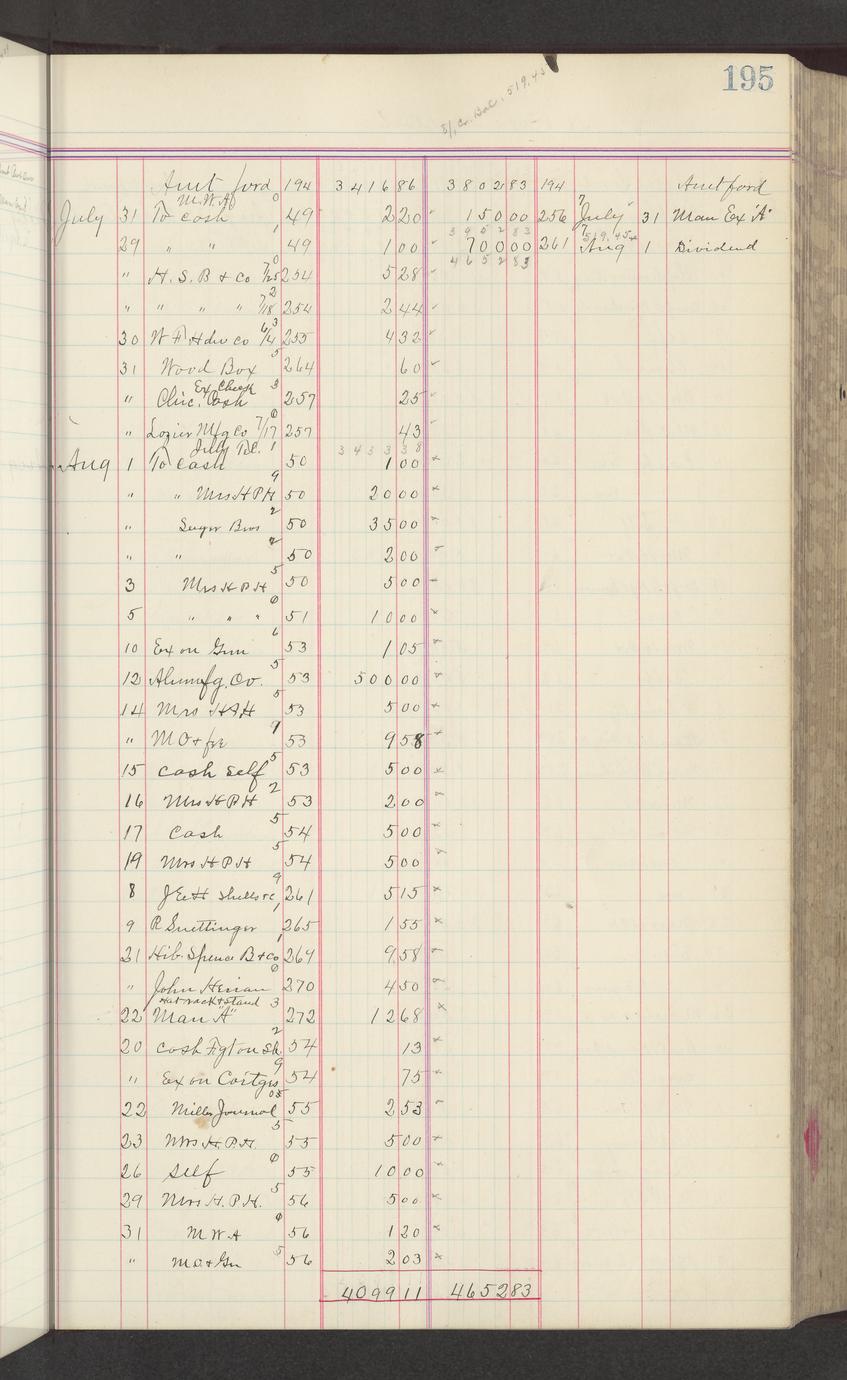 195
Cr. Bal. 519.45
Amt ford 194 3416 86 3802 83 194 Amt ford
M.W.A
July 31 To cash 49 2 20 150 00 256 July 31 Man Ex "A"
3952 83 519.45
29 " " 49 1 00 700 00 261 Aug 1 Dividend
4652 83
" H. S. B & Co 7/25 254 5 28
" " " " " 7/18 254 2 44
30 W F Hdw Co 6/4 255 4 32
31 Wood Box 264 60
Ex Check
" Chic. Cash 257 25
" Lozier Mfg Co 7/17 257 43
3433 38
July Tel.
Aug 1 To cash 50 1 00
" " Mrs H P H 50 20 00
" Bros 50 35 00
" " 50 2 00
3 Mrs H P H 50 5 00
5 " " " 51 10 00
10 Ex on Gun 53 1 05
12 53 500 00
14 Mrs H P H 53 5 00
" M O & 53 9 58
15 cash self 53 5 00
16 Mrs H P H 53 2 00
17 Cash 54 5 00
19 Mrs H P H 54 5 00
8 J E H Shells &c 261 5 15
9 R 265 1 55
21 Hib. Spence B & Co 269 9 58
" John 270 4 50
Hat rack & stand
22 Man "A" 272 12 68
20 cash 54 13
" Ex on 54 75
22 Journal 55 2 53
23 Mrs H. P. H. 55 5 00
26 Self 55 10 00
29 Mrs H. P. H. 56 5 00
31 M W A 56 1 20
" M O & Gn 56 2 03
4099 11 4652 83